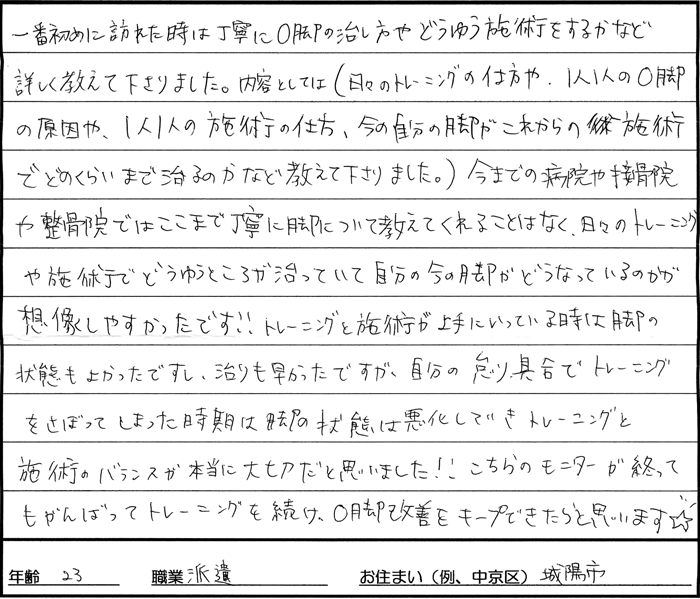 一番初めに訪れた時は丁寧にO脚の治し方やどうゆう施術をするかなど
詳しく教えて下さりました。内容としては(日々のトレーニングの仕方や、1人1人のO脚
の原因や、1人1人の施術の仕方、今の自分の脚がこれからの施術
でどのくらいまで治るのかなど教えて下さりました。)今までの病院や接骨院
や整骨院ではここまで丁寧に脚について教えてくれることはなく、日々のトレーニング
や施術でどうゆうところが治っていて自分の今の脚がどうなっているのかが
想像しやすかったです!!トレーニングと施術が上手にいっている時は脚の
状態もよかったですし、治りも早かったですが、自分の怠り具合でトレーニング
をさぼってしまった時期は脚の状態は悪化していきトレーニングと
施術のバランスが本当に大切だと思いました!!こちらのモニターが終って
もがんばってトレーニングを続け、O脚改善をキープできたらと思います☆
年齢 23 職業 派遣 お住まい(例、中京区) 城陽市